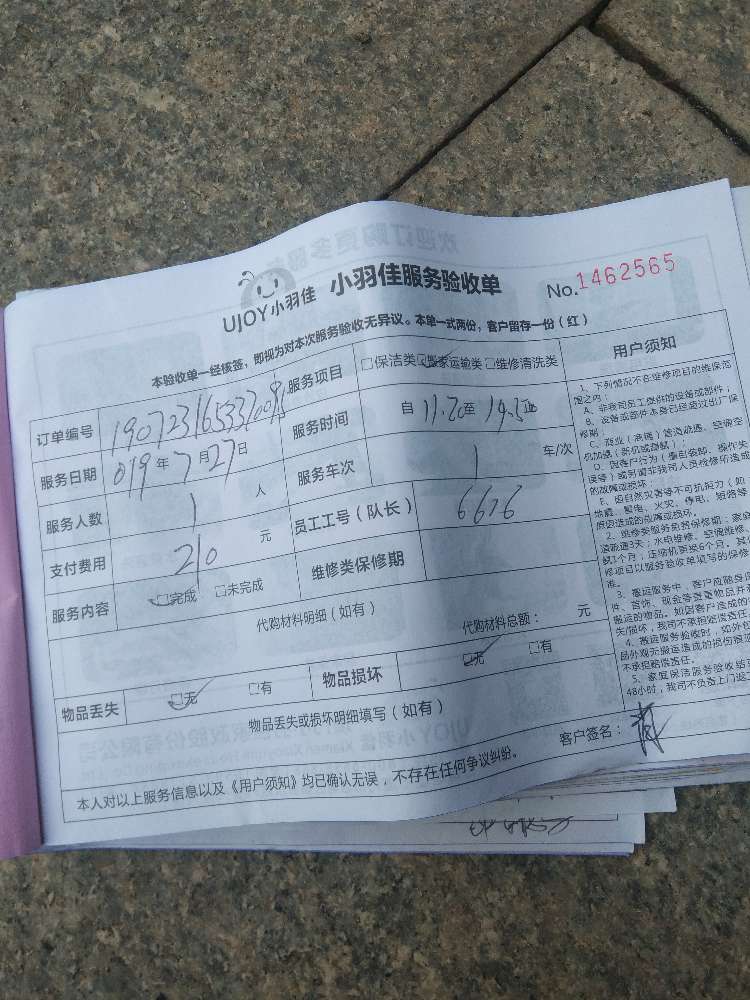 UJOY小羽佳 小羽佳服务验收单 No.1462565
本验收单一经核签，即视为对本次服务验收无异议。本单一式两份，客户留存一份（红）
订单编号 服务项目 □保洁类 □搬家运输类 □维修清洗类
服务日期 019年7月27日 服务时间 自11.20至
服务人数 1 人 服务车次 1 车/次
支付费用 210 元 员工工号（队长） 6676
服务内容 □完成 □未完成 维修类保修期
代购材料明细（如有） 代购材料总额： 元
物品丢失 □无 □有 物品损坏 □无 □有
物品丢失或损坏明细填写（如有）
客户签名：
本人对以上服务信息以及《用户须知》均已确认无误，不存在任何争议纠纷。
用户须知
1、下列情况不在维修项目的维保范
围之内：
A、非我司员工提供的设备或部件；
B、设备或部件本身已经超过出厂保
修期；
C、商业（高端）管道疏通、空调空
D、因客户行为（擅自装卸、操作失
误等）或另请非我司人员检修所造成
的故障或损坏；
E、因自然灾害等不可抗拒力（如
地震、雷电、火灾、停电、短路等
原因造成的故障或损坏。
2、维修类服务免费保修期：家庭
道疏通3天；水电维修、空调维修、
3、搬运服务中，客户应随身保
件、首饰、现金等贵重物品并
搬运的物品。如因客户造成的
失/损坏，我司不承担赔偿责任
4、搬运服务验收时，如外包
品外观无搬运造成的损伤痕
不承担赔偿责任。
5、家庭保洁服务验收结
48小时，我司不负责上门返工